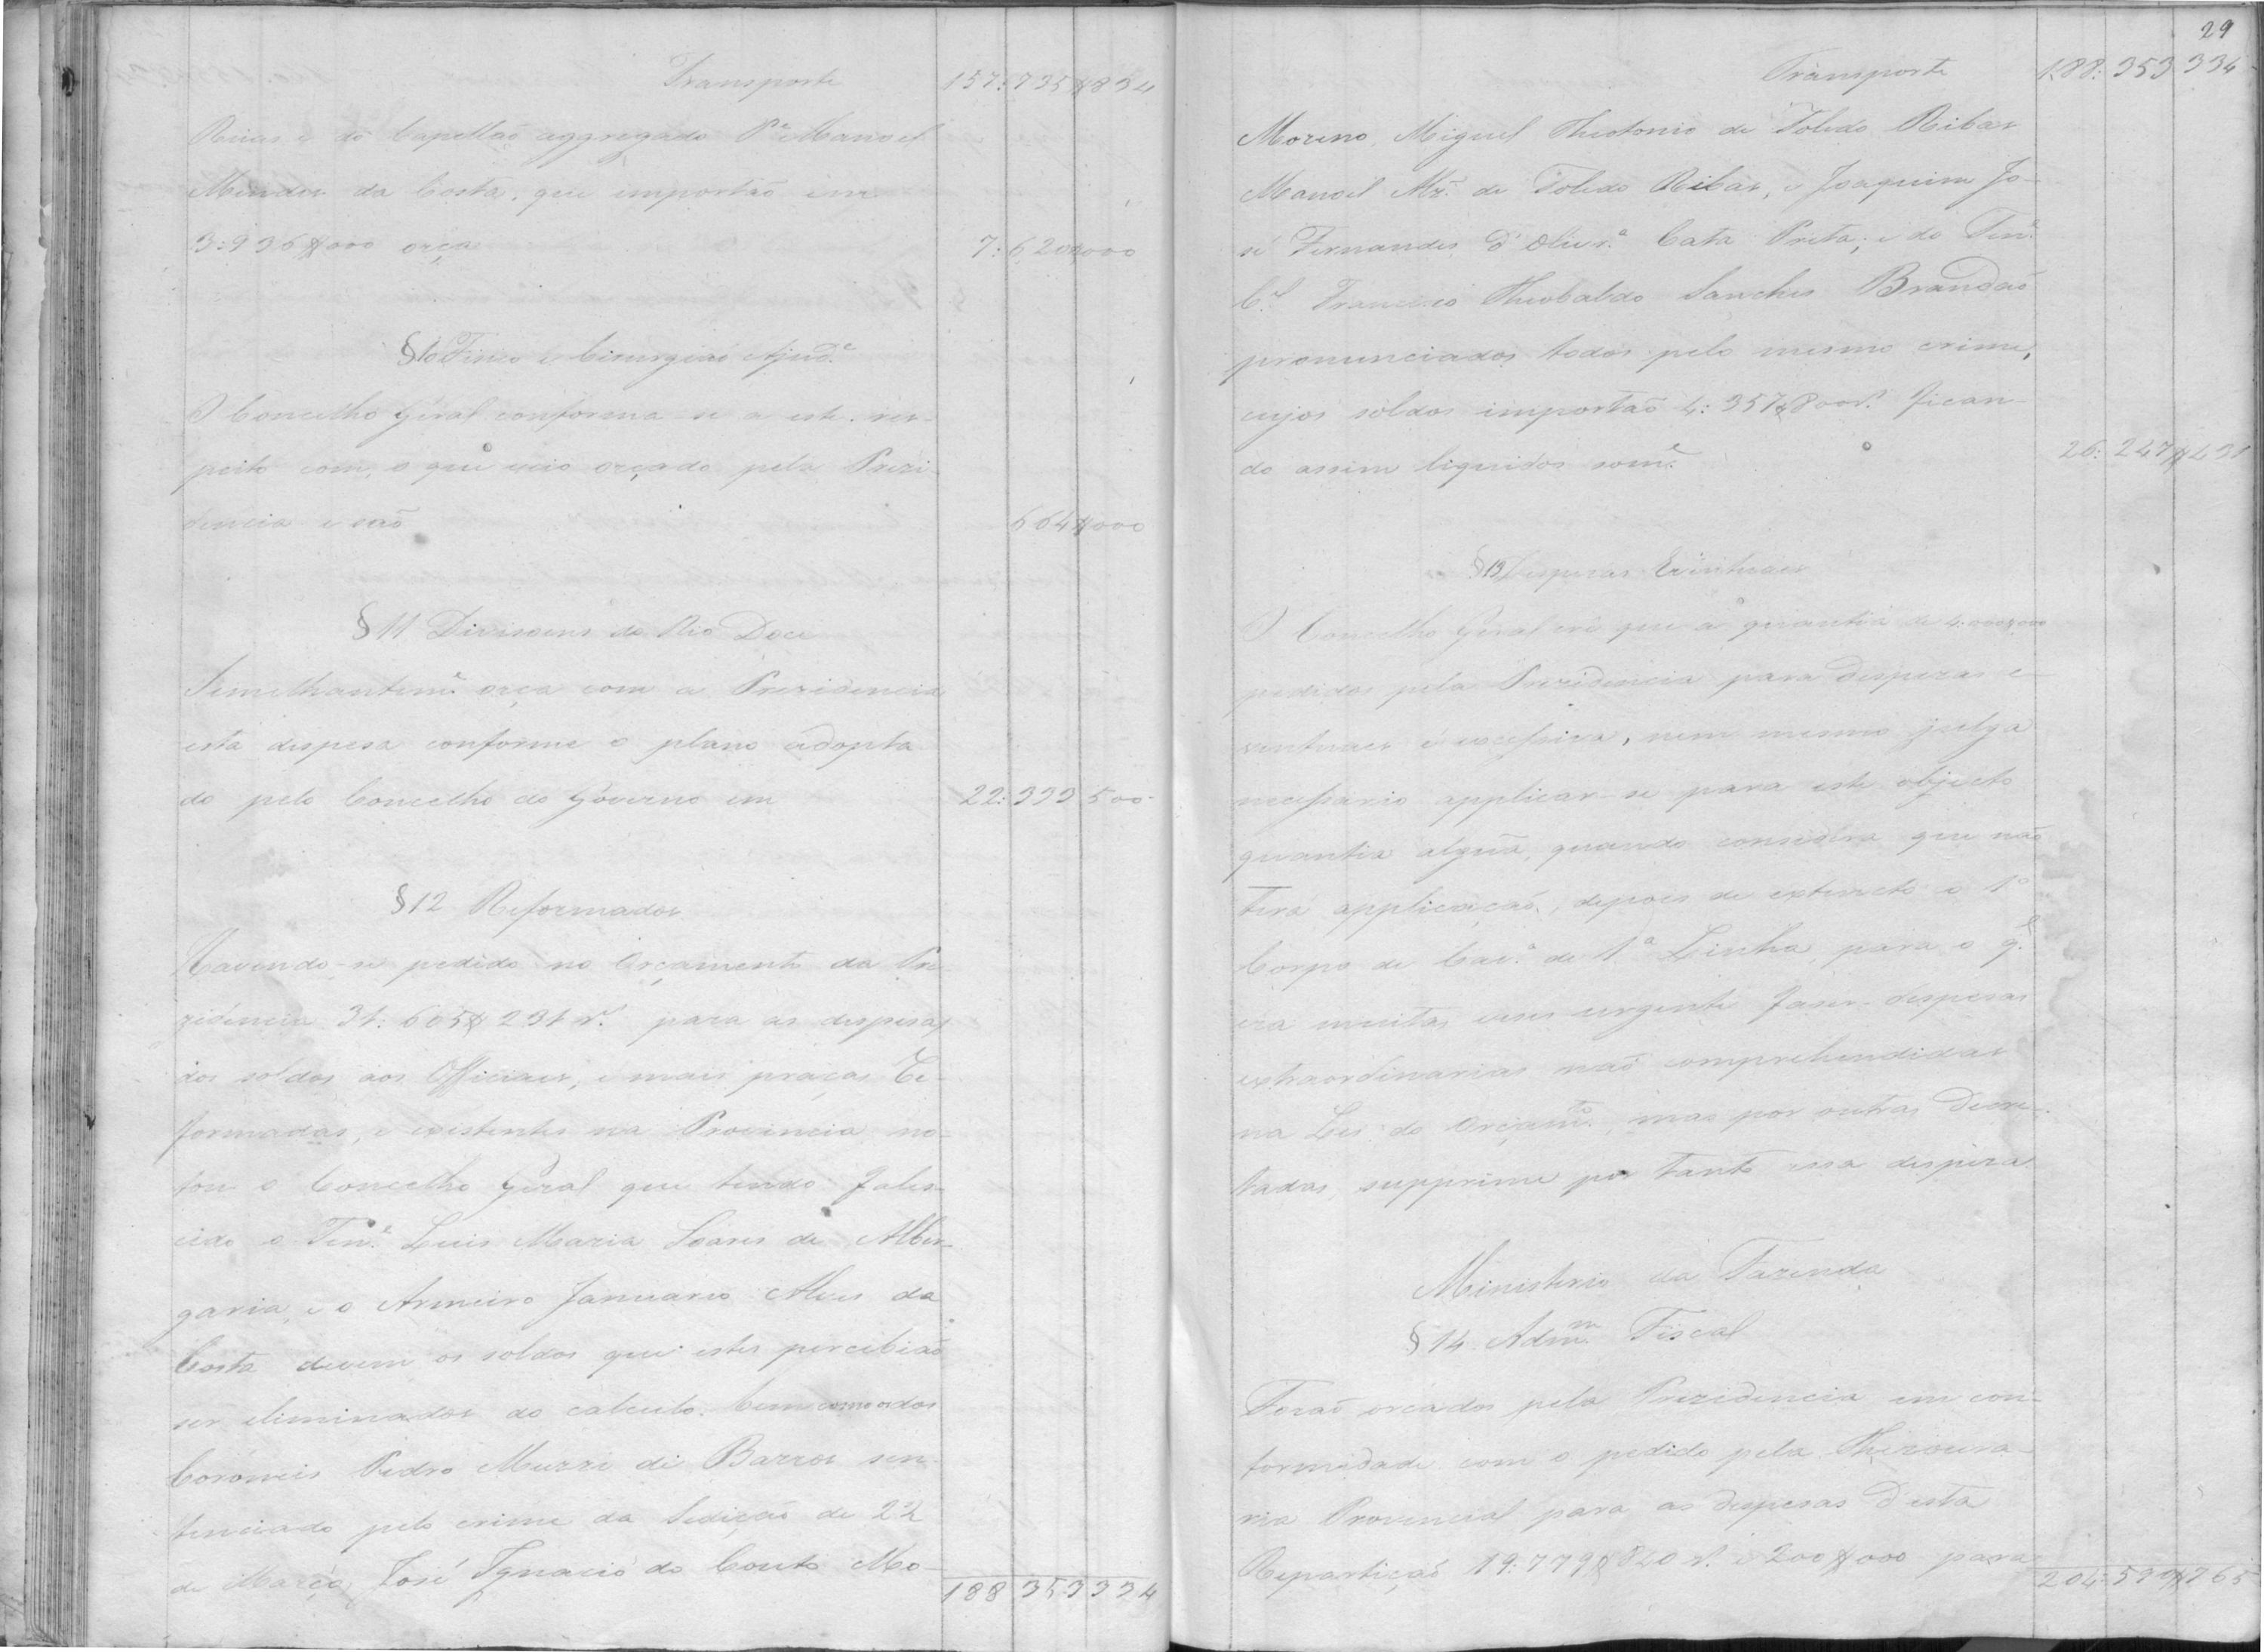 Transporte 157:735$834
Reises e do Capellaõ aggregado P.e Manoel
Mendes da Costa, que importaõ em
3:936$000 orça 7:620$000
§10 Fisico e Cirurgiaõ Ajud.e
O Concelho Geral conforma se a este res-
peito com o que veio orçado pela Prezi-
dencia e saõ 664$000
§11 Divisoens do Rio Doce
Similhantem.e orça com a Prezidencia
esta despesa conforme o plano adopta
do pelo Concelho do Governo em 22:333 500
§12 Reformados
Havendo-se pedido no Orçamento da Pre
zidencia 31:605$231 r.s para as despesas
dos soldos aos Officiaes, e mais praças Re-
formadas, e existentes na Provincia, no-
tou o Concelho Geral que tendo fales-
cido o Ten.e Luis Maria Soares de Alber-
garia, e o Armeiro Januario Alves da
Costa devem os soldos que estes percebiaõ
ser eliminados do calculo. bem como os dos
Coroneis Pedro Muzzi de Barros sen-
tenciado pelo crime da Sediçaõ de 22
de Março, José Ignacio do Couto Mo-
188 353 334
29
Transporte 188:353 334
Moreno, Miguel Theotonio de Toledo Ribas
Manoel Mz. de Toledo Ribas, e Joaquim Jo-
sé Fernandes d'Oliv.a Cata Preta; e do Ten.e
C.el Francisco Theobaldo Sanches Brandaõ
pronunciados todos pelo mesmo crime,
cujos soldos importaõ 4:357$800 r.s Fican-
do assim liquidos som.e 26:247$431
§13 Despezas Eventuaes
O Concelho Geral crê que a quantia de 4:000$000
pedidos pela Prezidencia para despezas e-
ventuaes é excessiva, nem mesmo julga
necessario applicar-se para este objecto
quantia algũa, quando considera que naõ
terá applicaçaõ, depois de extincto o 1.o
Corpo de Cav.a de 1.a Linha, para o q.l
era muitas vezes urgente fazer despesas
extraordinarias naõ comprehendidas
na Lei do Orçam.to, mas por outras Decre-
tadas, supprime por tanto essa despeza
Ministerio da Fazenda
§14 Adm.m Fiscal
Foraõ orçados pela Prezidencia em con-
formidade com o pedido pela Thezoura-
ria Provincial para as despesas d'esta
Repartiçaõ 19:779$820 r.s e 200$000 para
204:530$765